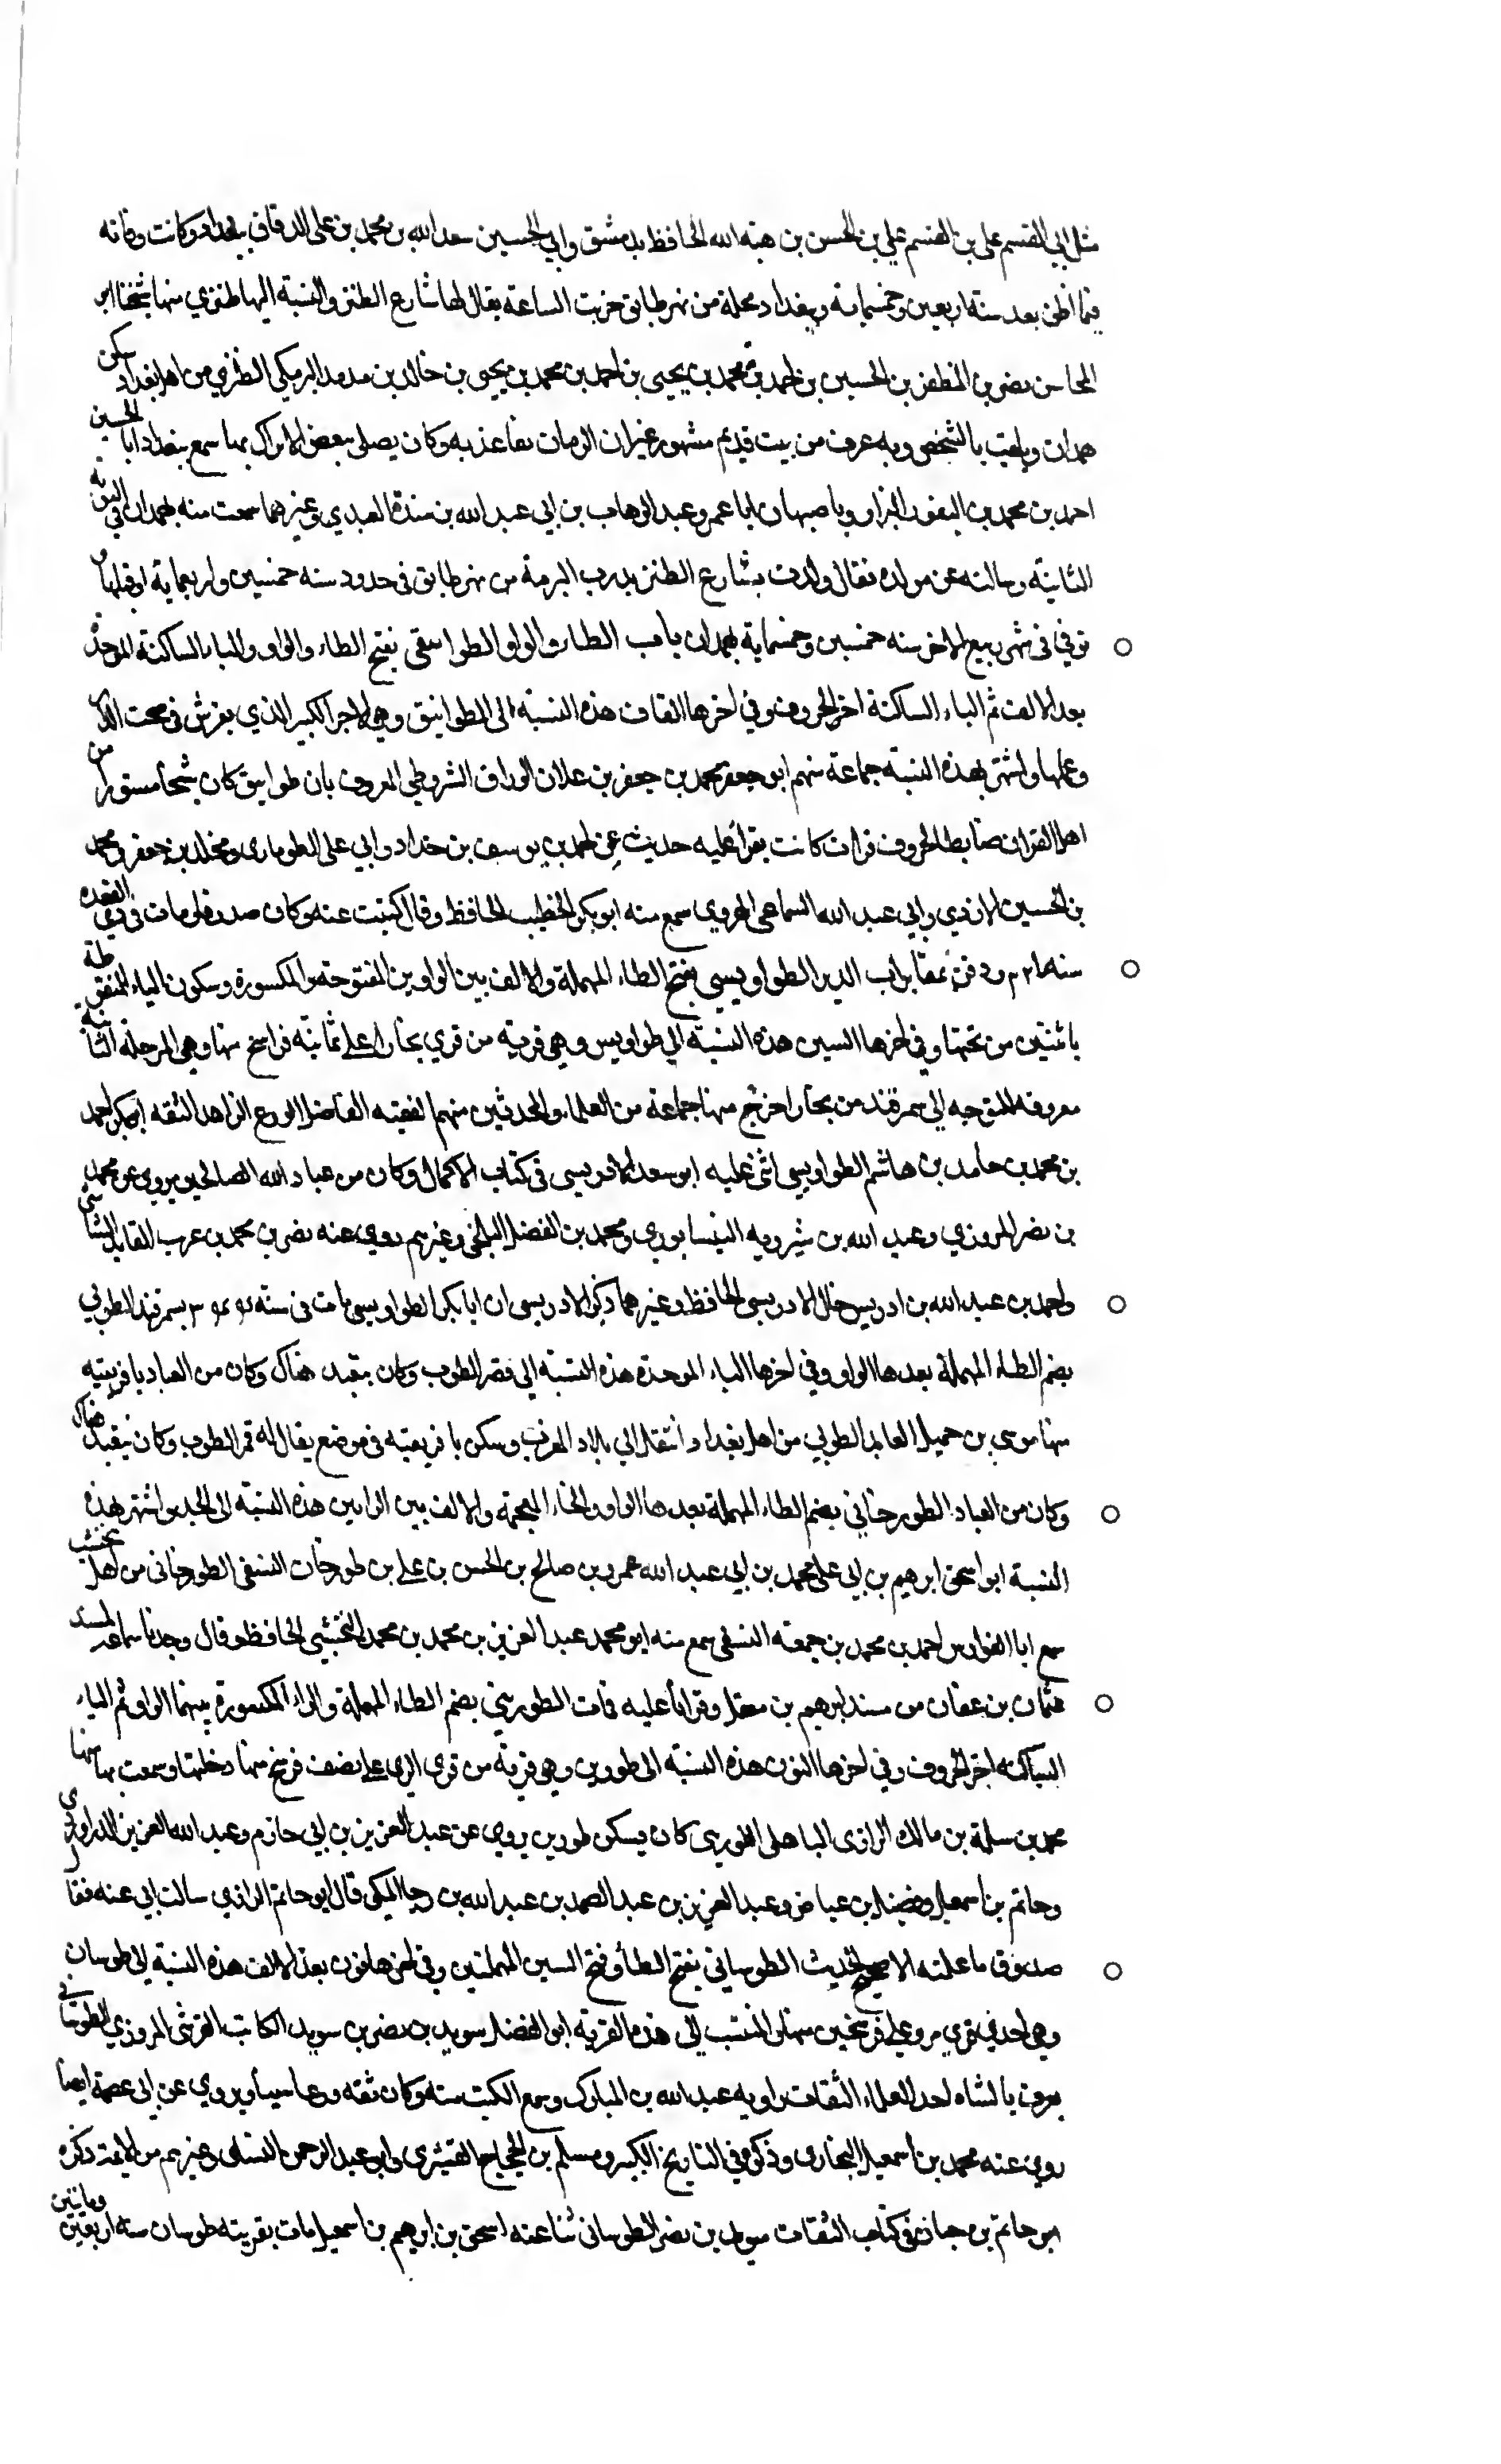 مثل ابي القسم علي بن القسم علي بن الحسن بن هبة الله الحافظ بدمشق وابي الحسين سعد الله بن محمد بن علي الدقاق ببغداد وكانت وفاته
فيما اظن بعد سنة اربعين وخمسماية وببغداد محلة من نهر طابق خربت الساعة يقال لها شارع الطنز والنسبة اليها طنزي منها شيخنا ابو
المحاسن نصر بن المظفر بن الحسين بن احمد بن محمد بن يحيى بن احمد بن محمد بن يحيى بن خالد بن برمك البرمكي الطنزي من اهل بغداد سكن
همدان ويلقب بالشخص وبه عرف من بيت قديم مشهور غير ان الزمان تقاعد به وكان يصلي ببعض الاتراك بها سمع ببغداد ابا الحسين
احمد بن محمد بن النقور البزاز وباصبهان ابا عمرو عبد الوهاب بن ابي عبد الله بن مندة العبدي وغيرهما سمعت منه بهمدان في النوبة
الثانية وسالته عن مولده فقال ولدت بشارع الطنز بدرب البرمة من نهر طابق في حدود سنة خمسين واربعماية او قبلها و
توفي في شهر ربيع الاخر سنة خمسين وخمسماية بهمدان باب الطاء والواو الطوابيقي بفتح الطاء والواو والباء الساكنة الموحدة
بعد الالف ثم الياء الساكنة اخر الحروف وفي اخرها القاف هذه النسبة الى الطوابيق وهي الاجر الكبير الذي يفرش في صحن الدار
وعملها واشتهر بهذه النسبة جماعة منهم ابو جعفر محمد بن جعفر بن علان الوراق الشروطي المعروف بابن طوابيق كان شيخا مستورا من
اهل القران ضابطا لحروف قرات كانت يقرأ عليه حديث عن احمد بن يوسف بن خلاد وابي علي الطوماري ومخلد بن جعفر ومحمد
بن الحسين الازدي وابي عبد الله السماعي الهروي سمع منه ابو بكر الخطيب الحافظ وقال كتبت عنه وكان صدوقا ومات في ذي القعدة
سنة ٤٢١ ودفن بمقابر باب الدير الطواويسي بفتح الطاء المهملة والالف بين الواوين المفتوحة والمكسورة وسكون الياء المنقوطة
باثنتين من تحتها وفي اخرها السين هذه النسبة الى طواويس وهي قرية من قرى بخارا على ثمانية فراسخ منها وهي المرحلة الثانية
معروفة للمتوجه الى سمرقند من بخارا خرج منها جماعة من العلماء والمحدثين منهم الفقيه الفاضل الورع الزاهد الثقة ابو بكر احمد
بن محمد بن حامد بن هاشم الطواويسي اثنى عليه ابو سعد الادريسي في كتاب الاكمال وكان من عباد الله الصالحين يروي عن محمد
بن نصر المروزي وعبد الله بن شيرويه النيسابوري ومحمد بن الفضل البلخي وغيرهم روى عنه نصر بن محمد بن غريب الشاشي
واحمد بن عبد الله بن ادريس خال الادريسي الحافظ وغيرهما ذكر الادريسي ان ابا بكر الطواويسي مات في سنة ٣٤٤ بسمرقند الطوبي
بضم الطاء المهملة بعدها الواو وفي اخرها الباء الموحدة هذه النسبة الى قصر الطوب وكان يتعبد هناك وكان من العباد بافريقية
منها موسى بن جميل العابد الطوبي من اهل بغداد انتقل الى بلاد المغرب وسكن بافريقية في موضع يقال له قصر الطوب وكان يتعبد هناك
وكان من العباد الطورخاني بضم الطاء المهملة بعدها الواو والخاء المعجمة والالف بين الرايين هذه النسبة الى الجد واشتهر بهذه
النسبة ابو اسحق ابرهيم بن ابي علي محمد بن ابي عبد الله عمرو بن صالح بن الحسن بن علي بن طورخان النسفي الطورخاني من اهل نخشب
سمع ابا الفوارس احمد بن محمد بن جمعة النسفي سمع منه ابو محمد عبد العزيز بن محمد بن محمد النخشبي الحافظ وقال وجدنا سماعه لمسند
عثمان بن عفان من مسند ابرهيم بن معقل وقرانا عليه فمات الطوريني بضم الطاء المهملة والراء المكسورة بينهما الواو ثم الياء
الساكنة اخر الحروف وفي اخرها النون هذه النسبة الى طورين وهي قرية من قرى الري على نصف فرسخ منها دخلتها وسمعت بها منها
محمد بن سلمة بن مالك الرازي الباهلي الطوريني كان يسكن طورين يروي عن عبد العزيز بن ابي حازم وعبد الله العزيز الدراوردي
وحاتم بن اسمعيل وفضيل بن عياض وعبد العزيز بن عبد الصمد بن عبد الله بن رجا المكي قال ابو حاتم الرازي سالت ابي عنه فقال
صدوق ما علمته الا صحيح الحديث الطوساني بفتح الطاء وفتح السين المهملتين وفي اخرها نون بعد الالف هذه النسبة الى طوسان
وهي احدى قرى مرو على فرسخين منها المنتسب الى هذه القرية ابو الفضل سويد بن نصر بن سويد الكاتب القرشي المروزي الطوساني
يعرف بالشاه احد العلماء الثقات راوية عبد الله بن المبارك وسمع الكتب منه وكان ثقة ورعا سيا ويروي عن ابي عصمة ايضا
روى عنه محمد بن اسمعيل البخاري وذكره في التاريخ الكبير ومسلم بن الحجاج القشيري وابو عبد الرحمن النسائي وغيرهم من الائمة ذكره
ابو حاتم بن حبان في كتاب الثقات سويد بن نصر الطوساني ثنا عنه اسحق بن ابرهيم بن اسمعيل مات بقرية طوسان سنة اربعين ومائتين